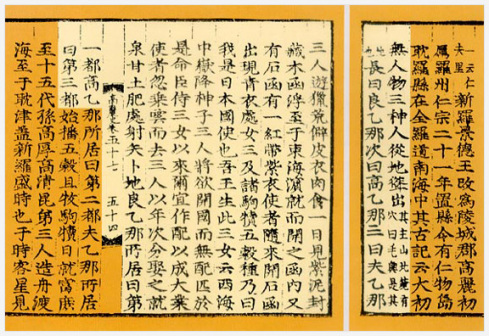 一云仁
夫里
新羅景德王改爲陵城郡高麗初
屬羅州仁宗二十一年置縣令有仁物島
耽羅縣在全羅道南海中其古記云大初
無人物三神人從地聳出
其主山北麓有
穴曰毛興是其
地也
長曰良乙那次曰高乙那三曰夫乙那
三人遊獵荒僻皮衣肉食一日見紫泥封
藏木函浮至于東海濱就而開之函內又
有石函有一紅帶紫衣使者隨來開石函
出現青衣處女三及諸駒犢五穀種乃曰
我是日本國使也吾王生此三女云西海
中嶽降神子三人將欲開國而無配匹於
是命臣侍三女以來爾宜作配以成大業
使者忽乘雲而去三人以年次分娶之就
泉甘土肥處射矢卜地良乙那所居曰第
高麗史卷五十七 五十四
一都高乙那所居曰第二都夫乙那所居
曰第三都始播五穀且牧駒犢日就富庶
至十五代孫高厚高清昆弟三人造舟渡
海至于耽津盖新羅盛時也于時客星見